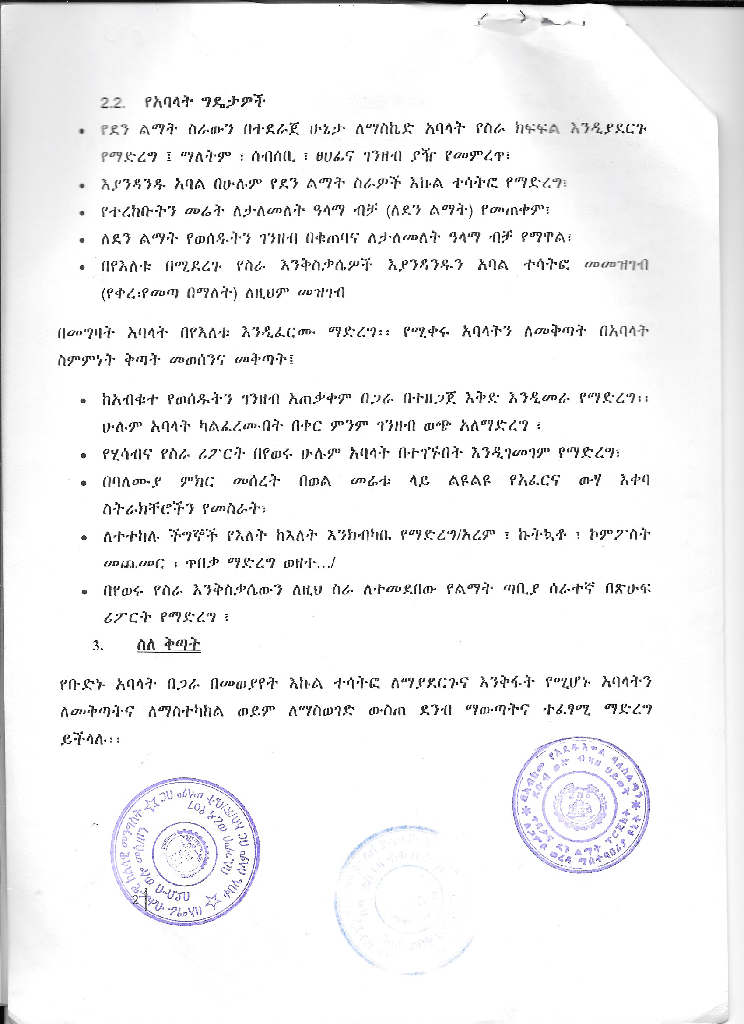 2.2. የአባላት ግዴታዎች
• የደን ልማት ስራውን በተደራጀ ሁኔታ ለማስኬድ አባላት የስራ ክፍፍል እንዲያደርጉ
የማድረግ ፤ ማለትም ፡ ሰብሰቢ ፡ ፀሀፊና ገንዘብ ያዥ የመምረጥ፡
• እያንዳንዱ አባል በሁሉም የደን ልማት ስራዎች እኩል ተሳትፎ የማድረግ፡
• የተረከቡትን መሬት ለታለመለት ዓላማ ብቻ (ለደን ልማት) የመጠቀም፡
• ለደን ልማት የወሰዱትን ገንዘብ በቁጠባና ለታለመለት ዓላማ ብቻ የማዋል፡
• በየእለቱ በሚደረጉ የስራ እንቅስቃሴዎች እያንዳንዱን አባል ተሳትፎ መመዝገብ
(የቀረ፡የመጣ በማለት) ለዚህም መዝገብ
በመግዛት አባላት በየእለቱ እንዲፈርሙ ማድረግ፡፡ የሚቀሩ አባላትን ለመቅጣት በአባላት
ስምምነት ቅጣት መወሰንና መቅጣት፤
• ከአብቁተ የወሰዱትን ገንዘብ አጠቃቀም በጋራ በተዘጋጀ እቅድ እንዲመራ የማድረግ፡፡
ሁሉም አባላት ካልፈረሙበት በቀር ምንም ገንዘብ ወጭ አለማድረግ ፡
• የሂሳብና የስራ ሪፖርት በየወሩ ሁሉም አባላት በተገኙበት እንዲገመገም የማድረግ፡
• በባለሙያ ምክር መሰረት በወል መሬቱ ላይ ልዩልዩ የአፈርና ውሃ እቀባ
ስትራክቸሮችን የመስራት፡
• ለተተከሉ ችግኞች የእለት ከእለት እንክብካቤ የማድረግ/አረም ፣ ኩትኳቶ ፣ ኮምፖስት
መጨመር ፣ ጥበቃ ማድረግ ወዘተ.../
• በየወሩ የስራ እንቅስቃሴውን ለዚህ ስራ ለተመደበው የልማት ጣቢያ ሰራተኛ በጽሁፍ
ሪፖርት የማድረግ ፡
3. ስለ ቅጣት
የቡድኑ አባላት በጋራ በመወያየት እኩል ተሳትፎ ለማያደርጉና እንቅፋት የሚሆኑ አባላትን
ለመቅጣትና ለማስተካከል ወይም ለማስወገድ ውስጠ ደንብ ማውጣትና ተፈፃሚ ማድረግ
ይችላሉ፡፡
2